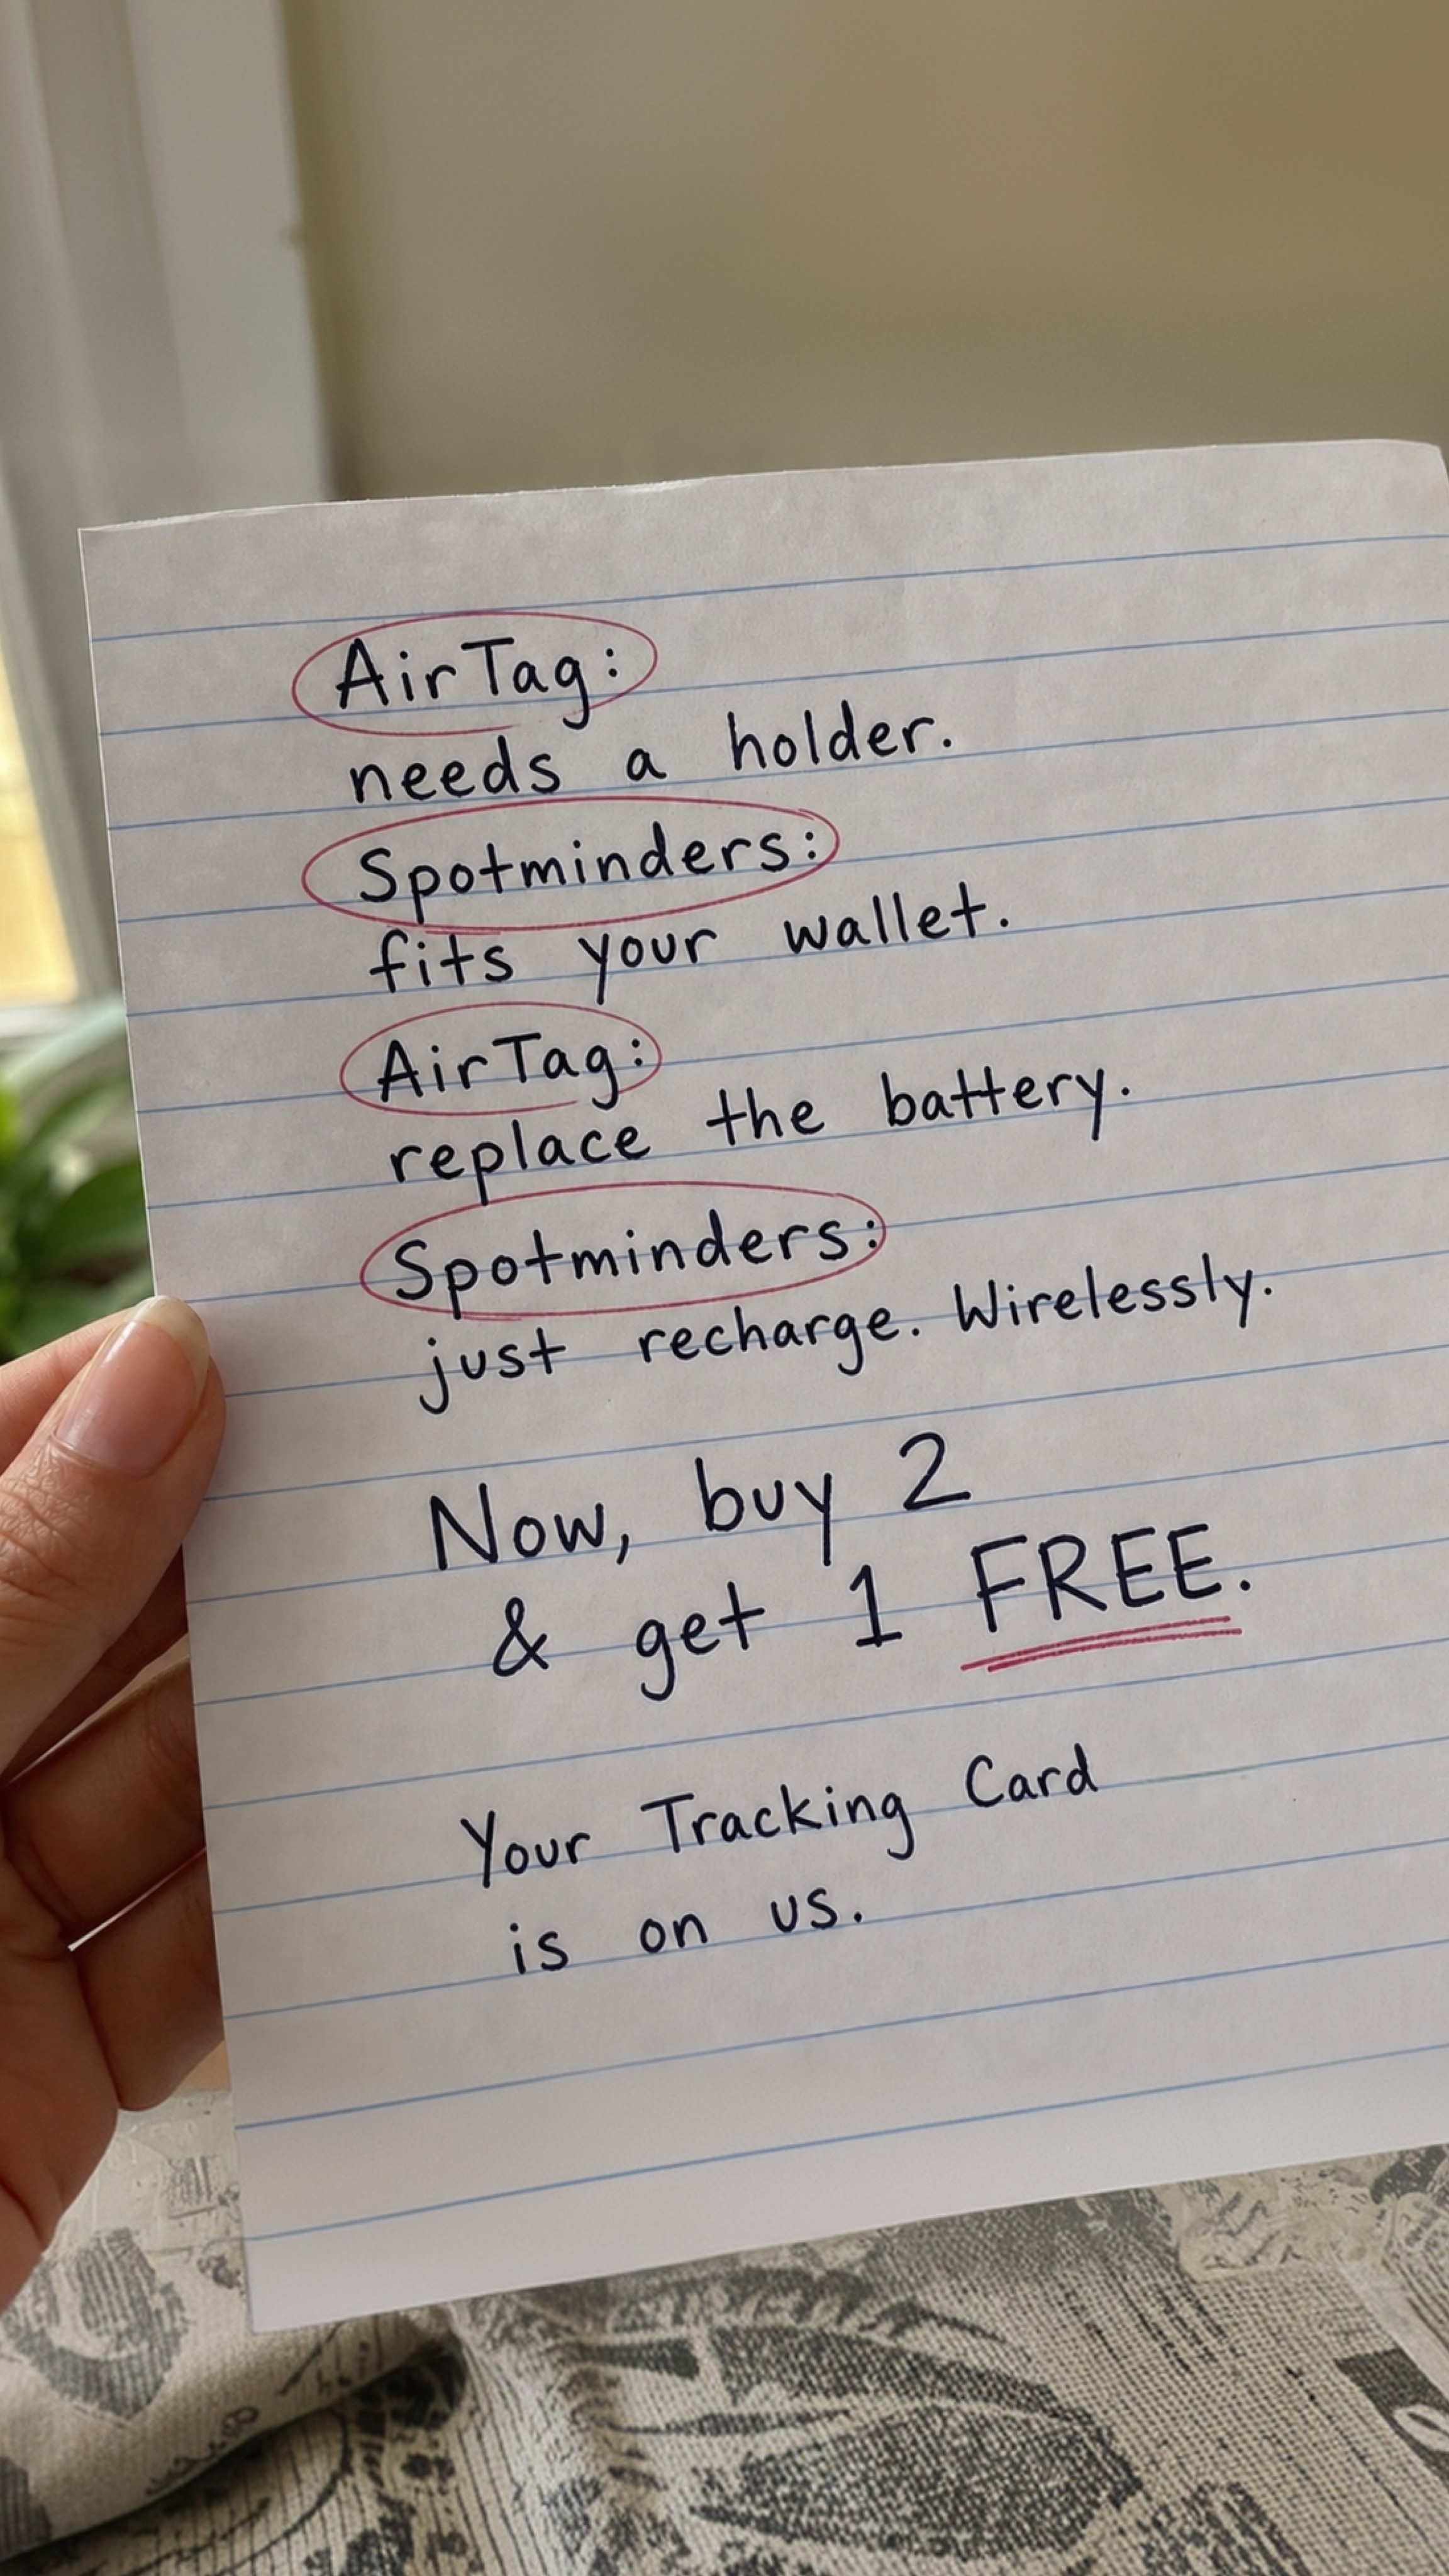 AirTag:
needs a holder.
Spotminders:
fits your wallet.
AirTag:
replace the battery.
Spotminders:
just recharge. Wirelessly.
Now, buy 2
& get 1 FREE.
Your Tracking Card
is on us.